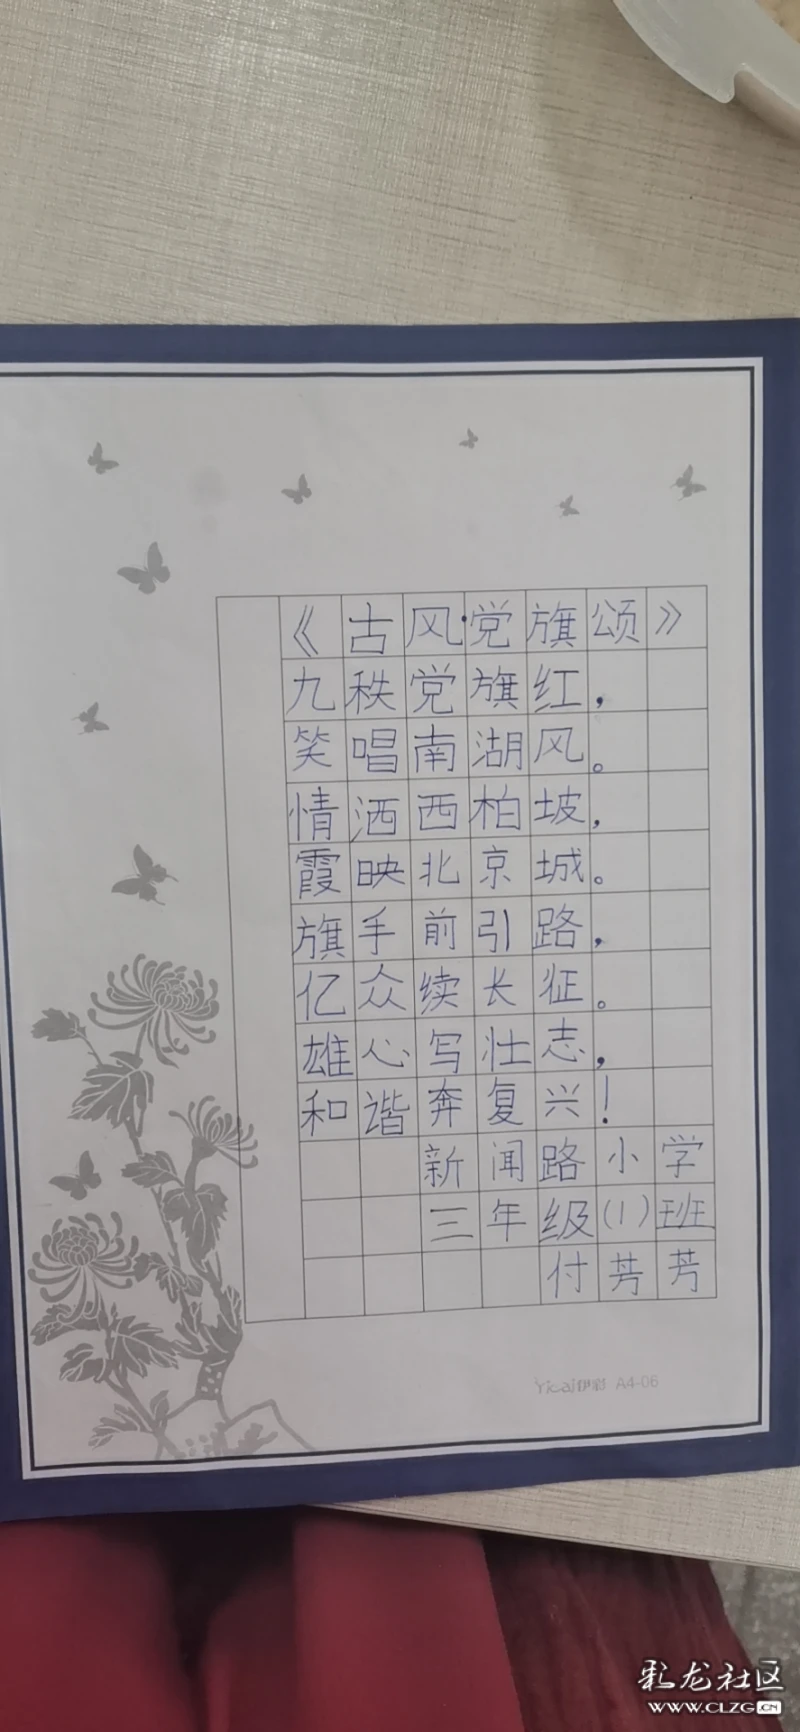 《古风·党旗颂》
九秩党旗红，
笑唱南湖风。
情洒西柏坡，
霞映北京城。
旗手前引路，
亿众续长征。
雄心写壮志，
和谐奔复兴！
新闻路小学
三年级(1)班
付芳芳
Yicai伊彩 A4-06
彩龙社区
WWW.CLZG.CN